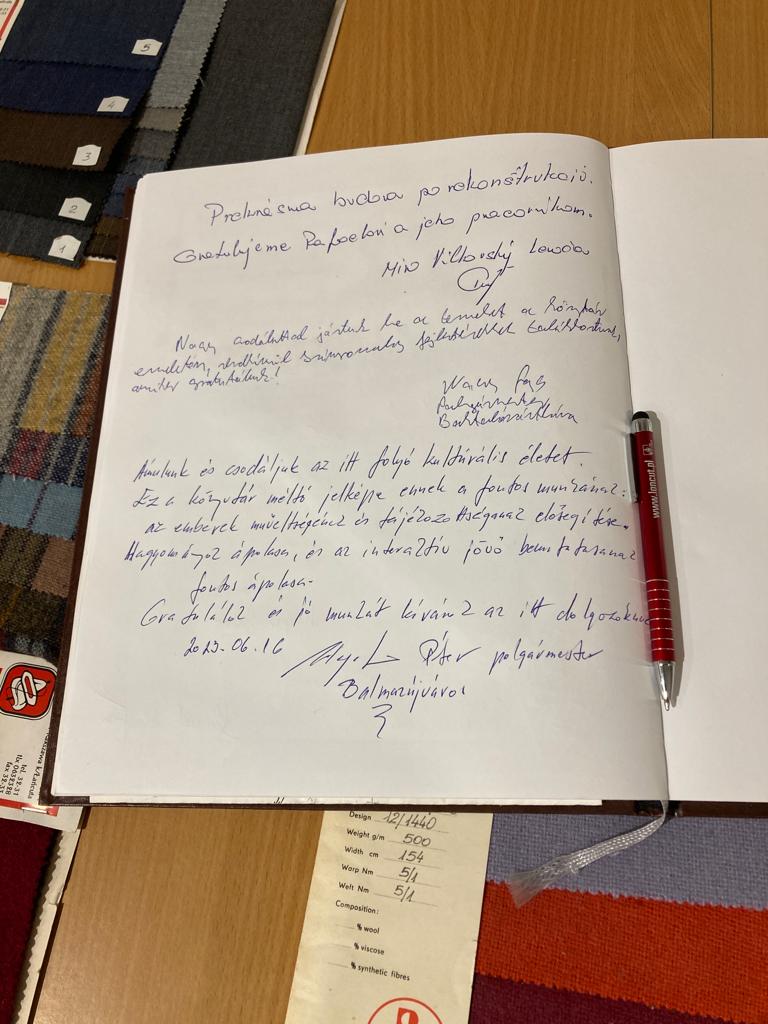 5
4
3
2
1
Prekrásna budova po rekonštrukcii.
Gratulujeme Rafaelovi a jeho pracovníkom.
Miro Levoča
Nagy csodálattal jártuk be a termeket a könyvtár
színvonalas
amihez gratulálunk!
Nagy
Polgármester
Ámulunk és csodáljuk az itt folyó kultúrális életet.
Ez a könyvtár méltó jelképe ennek a fontos munkának.
az emberek műveltségének és tájékozottságának elősegítése.
Hagyományok ápolása, és az interaktív jövő bemutatásának
fontos ápolása.
Gratulálok és jó munkát kívánok az itt dolgozóknak
2023.06.16
Péter polgármester
Balmazújváros
www.loncut.pl
tel. 32-31
tlx 0632328
fax 32-33
Design 12/1440
Weight g/m 500
Width cm 154
Warp Nm 5/1
Weft Nm 5/1
Composition:
% wool
% viscose
% synthetic fibres